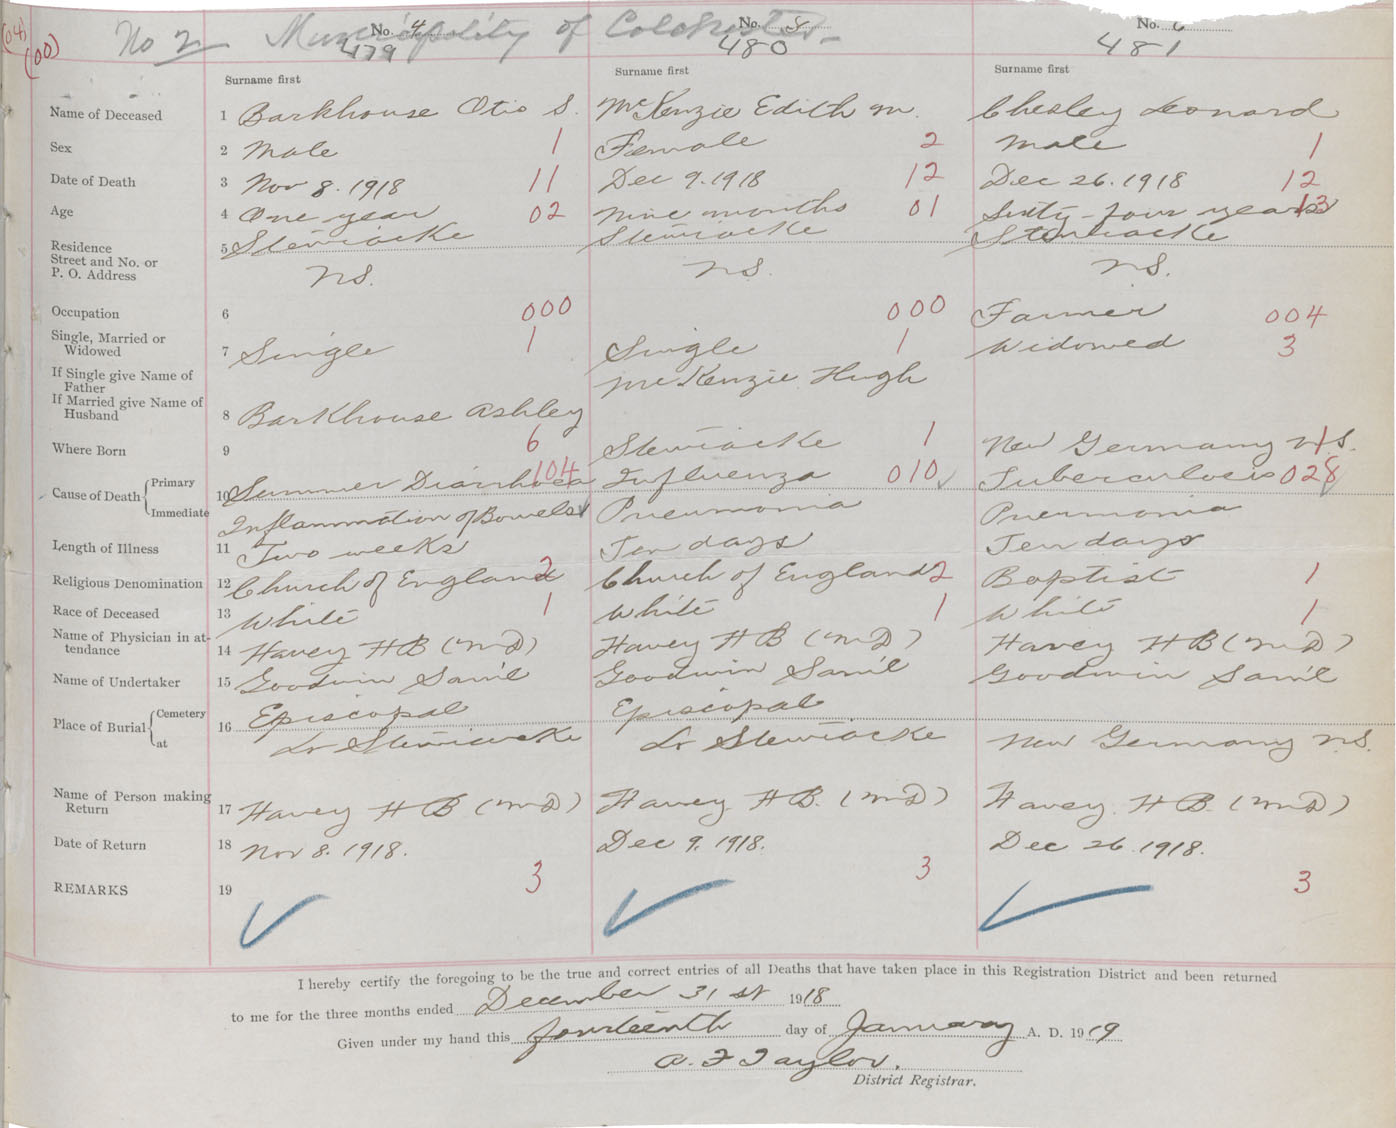 (04)
(00)
No 2 Municipality of Colchester
No. 4 No. 5 No. 6
479 480 481
Surname first Surname first Surname first
Name of Deceased 1 Barkhouse Otis S. McKenzie Edith M. Chesley Leonard
Sex 2 Male 1 Female 2 Male 1
Date of Death 3 Nov 8. 1918 11 Dec 9. 1918 12 Dec 26. 1918 12
Age 4 One year 02 Nine months 01 Sixty-four years 13
Residence 5 Stewiacke Stewiacke Stewiacke
Street and No. or
P. O. Address NS. NS. NS.
Occupation 6 000 000 Farmer 004
Single, Married or
Widowed 7 Single 1 Single 1 Widowed 3
If Single give Name of
Father McKenzie Hugh
If Married give Name of
Husband 8 Barkhouse Ashley
Where Born 9 6 Stewiacke 1 New Germany N.S. 1
Cause of Death { Primary 10 Summer Diarrhoea 104 Influenza 010 Tuberculosis 028
Immediate Inflammation of Bowels Pneumonia Pneumonia
Length of Illness 11 Two weeks Ten days Ten days
Religious Denomination 12 Church of England 2 Church of England 2 Baptist 1
Race of Deceased 13 White 1 White 1 White 1
Name of Physician in at-
tendance 14 Havey H B (M D) Havey H B (M D) Havey H B (M D)
Name of Undertaker 15 Goodwin Sam'l Goodwin Sam'l Goodwin Sam'l
Place of Burial { Cemetery 16 Episcopal Episcopal
at Lr Stewiacke Lr Stewiacke New Germany N.S.
Name of Person making
Return 17 Havey H B (M D) Havey H B. (M D) Havey H B. (M D)
Date of Return 18 Nov 8. 1918. Dec 9. 1918. Dec 26. 1918.
REMARKS 19 3 3 3
I hereby certify the foregoing to be the true and correct entries of all Deaths that have taken place in this Registration District and been returned
to me for the three months ended December 31 st 1918
Given under my hand this fourteenth day of January A. D. 1919
A. F Taylor.
District Registrar.